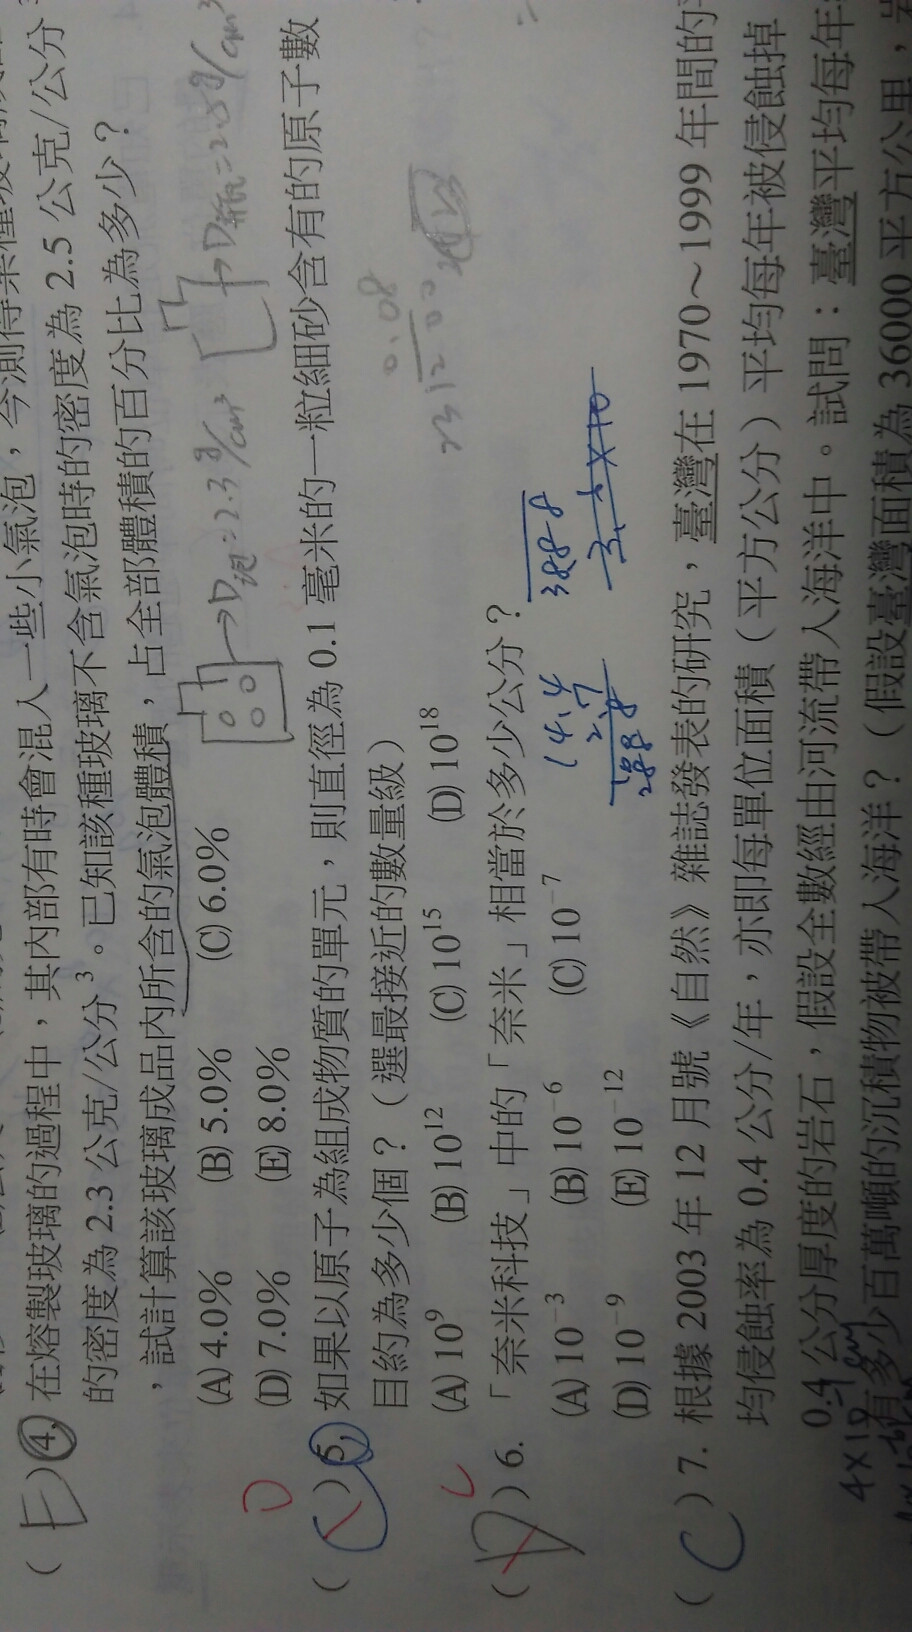 ( E ) 4. 在熔製玻璃的過程中，其內部有時會混入一些小氣泡，今測得某種玻璃
的密度為 2.3 公克/公分³。已知該種玻璃不含氣泡時的密度為 2.5 公克/公分
，試計算該玻璃成品內所含的氣泡體積，占全部體積的百分比為多少？
(A) 4.0% (B) 5.0% (C) 6.0%
(D) 7.0% (E) 8.0%
→D泡=2.3 g/cm³
→D瓶=2.5 g/cm³
D
( C ) 5. 如果以原子為組成物質的單元，則直徑為 0.1 毫米的一粒細砂含有的原子數
目約為多少個？（選最接近的數量級）
(A) 10⁹ (B) 10¹² (C) 10¹⁵ (D) 10¹⁸
0.08
C
( D ) 6. 「奈米科技」中的「奈米」相當於多少公分？
(A) 10⁻³ (B) 10⁻⁶ (C) 10⁻⁷
(D) 10⁻⁹ (E) 10⁻¹²
14.4
2.7
3888
( C ) 7. 根據 2003 年 12 月號《自然》雜誌發表的研究，臺灣在 1970～1999 年間的平
均侵蝕率為 0.4 公分/年，亦即每單位面積（平方公分）平均每年被侵蝕掉
0.4 公分厚度的岩石，假設全數經由河流帶入海洋中。試問：臺灣平均每年
有多少百萬噸的沉積物被帶入海洋？（假設臺灣面積為 36000 平方公里，岩